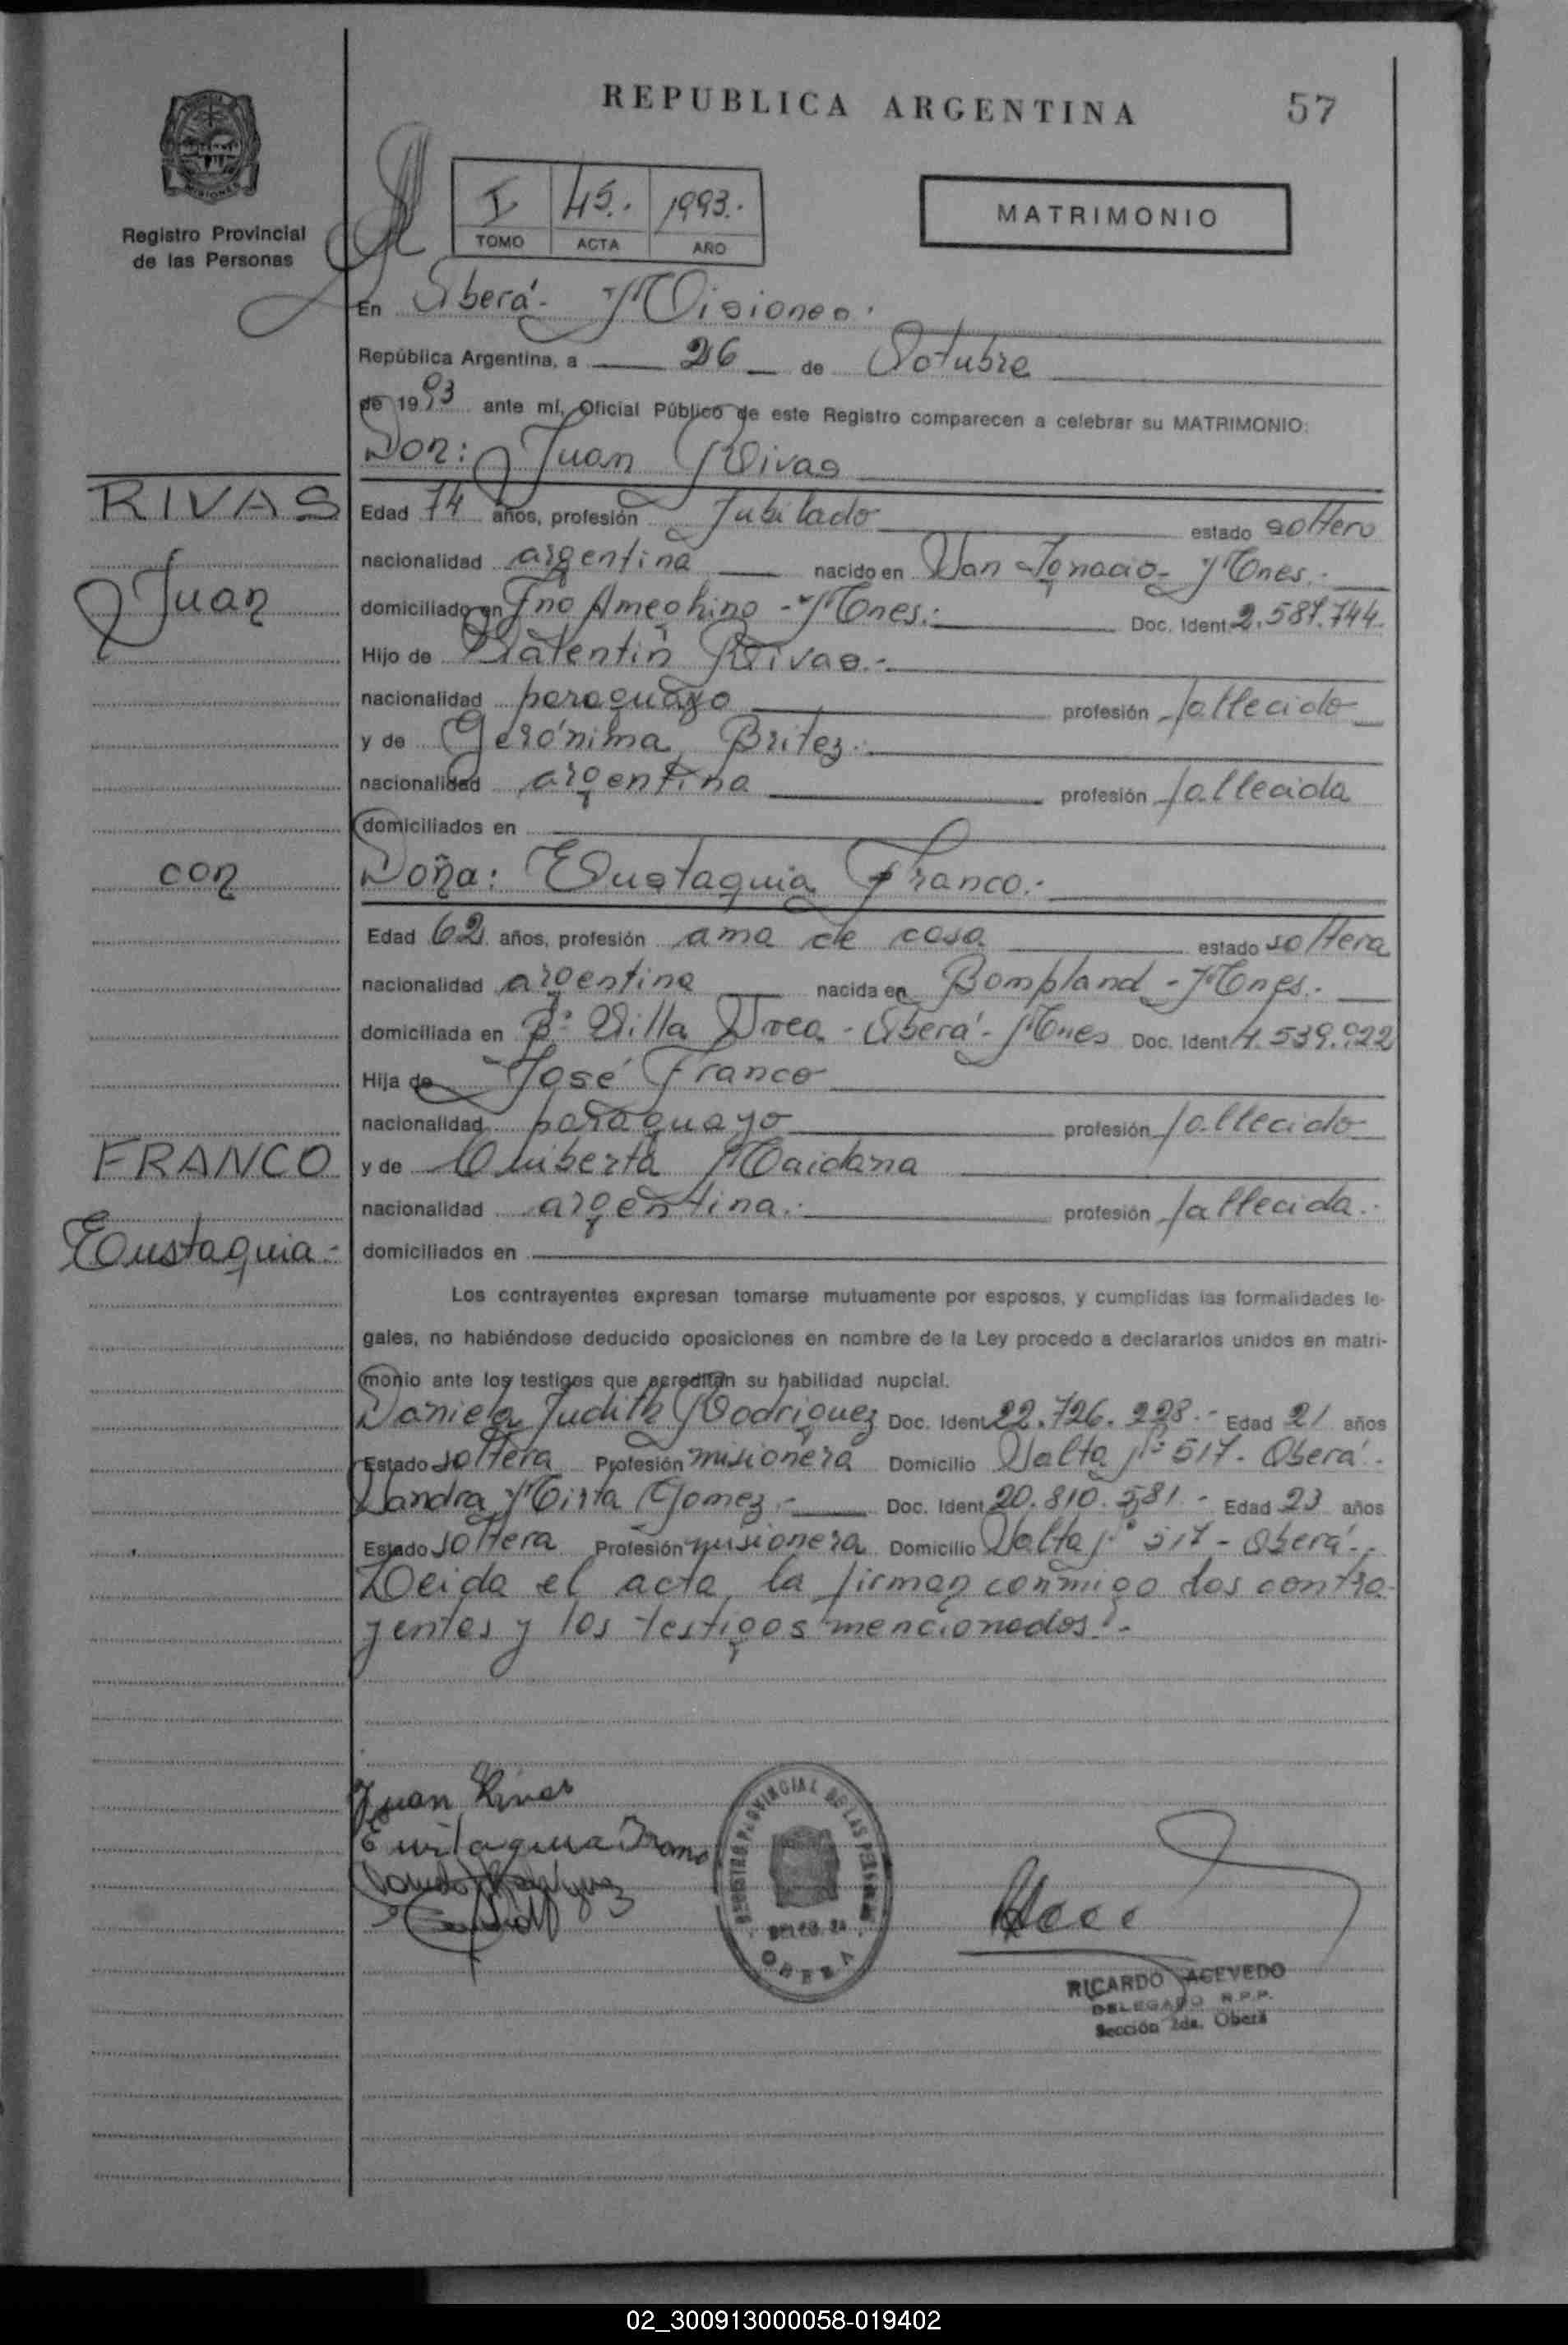 REPUBLICA ARGENTINA
57
Registro Provincial
de las Personas
I 45.. 1993..
TOMO ACTA AÑO
MATRIMONIO
En Oberá - Misiones.
República Argentina, a 26 de Octubre
de 1993 ante mí, Oficial Público de este Registro comparecen a celebrar su MATRIMONIO:
Don: Juan Rivas
RIVAS
Edad 74 años, profesión Jubilado estado soltero
nacionalidad argentina nacido en San Ignacio - Mnes.
Juan
domiciliado en Fno Ameghino - Mnes. Doc. Ident. 2.587.744.
Hijo de Valentin Rivas.-
nacionalidad paraguayo profesión fallecido
y de Gerónima Britez.-
nacionalidad argentina profesión fallecida
domiciliados en
con
Doña: Eustaquia Franco.-
Edad 62 años, profesión ama de casa estado soltera
nacionalidad argentina nacida en Bompland - Mnes.
domiciliada en B° Villa - Oberá - Mnes Doc. Ident.
Hija de José Franco
nacionalidad paraguayo profesión fallecido
FRANCO
y de Maidana
nacionalidad argentina.- profesión fallecida.-
Eustaquia.-
domiciliados en
Los contrayentes expresan tomarse mutuamente por esposos, y cumplidas las formalidades le-
gales, no habiéndose deducido oposiciones en nombre de la Ley procedo a declararlos unidos en matri-
monio ante los testigos que acreditan su habilidad nupcial.
Daniela Judith Rodriguez Doc. Ident. 22.726.228.- Edad 21 años
Estado soltera Profesión misionera Domicilio Salta N° 517 - Oberá.-
Sandra Mirta Gomez.- Doc. Ident. 20.810.581.- Edad 23 años
Estado soltera Profesión misionera Domicilio Salta N° 517 - Oberá.-
Leida el acta, la firman conmigo los contra-
yentes y los testigos mencionados.-
Juan Rivas
Eustaquia Franco
REGISTRO PROVINCIAL DE LAS PERSONAS
OBERA
RICARDO ACEVEDO
DELEGADO R.P.P.
Sección 2da. Oberá
02_300913000058-019402